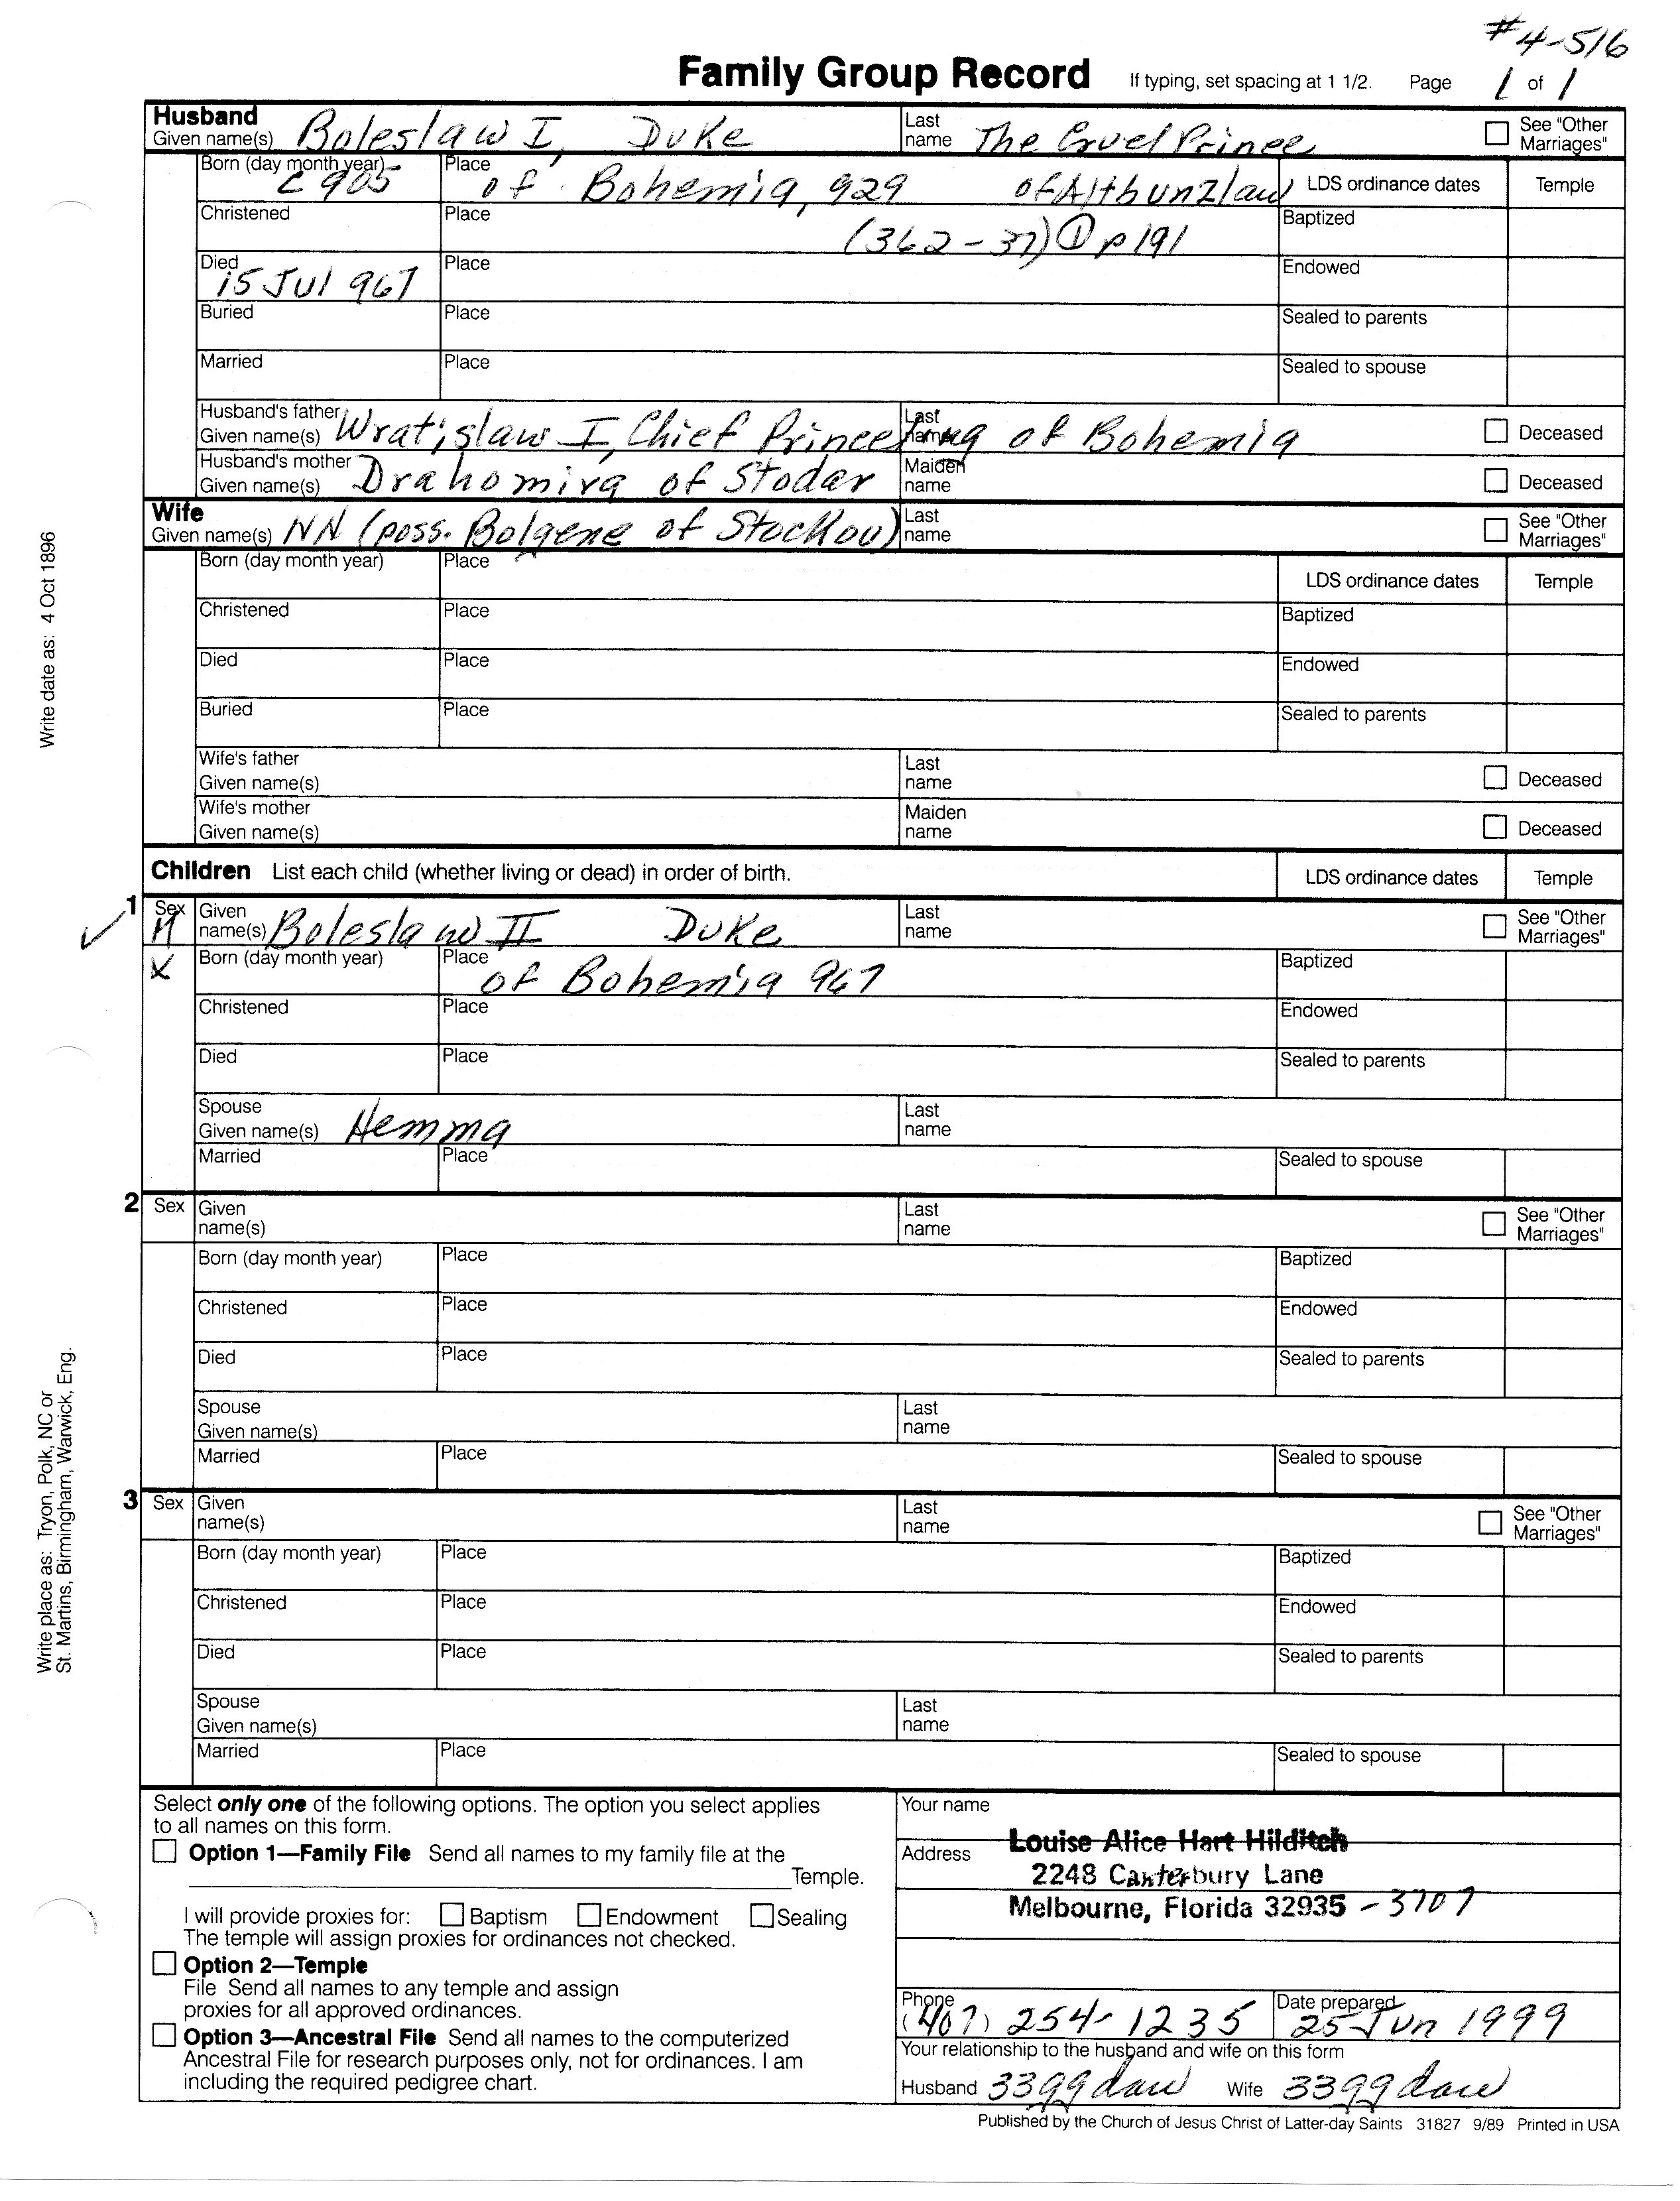 #4-516
Family Group Record If typing, set spacing at 1 1/2. Page 1 of 1
Husband
Given name(s) Boleslaw I, Duke Last name The Cruel Prince See "Other Marriages"
Born (day month year) c 905 Place of Bohemia, 929 of Altbunzlau LDS ordinance dates Temple
Christened Place (362-37) ① p 191 Baptized
Died 15 Jul 967 Place Endowed
Buried Place Sealed to parents
Married Place Sealed to spouse
Husband's father Given name(s) Wratislaw I, Chief Prince Last name of Bohemia Deceased
Husband's mother Given name(s) Drahomira of Stodar Maiden name Deceased
Wife
Given name(s) NN (poss. Bolgene of Stockou) Last name See "Other Marriages"
Born (day month year) Place LDS ordinance dates Temple
Christened Place Baptized
Died Place Endowed
Buried Place Sealed to parents
Wife's father Given name(s) Last name Deceased
Wife's mother Given name(s) Maiden name Deceased
Children List each child (whether living or dead) in order of birth. LDS ordinance dates Temple
1 Sex M Given name(s) Boleslaw II Duke Last name See "Other Marriages"
X Born (day month year) Place of Bohemia 967 Baptized
Christened Place Endowed
Died Place Sealed to parents
Spouse Given name(s) Hemma Last name
Married Place Sealed to spouse
2 Sex Given name(s) Last name See "Other Marriages"
Born (day month year) Place Baptized
Christened Place Endowed
Died Place Sealed to parents
Spouse Given name(s) Last name
Married Place Sealed to spouse
3 Sex Given name(s) Last name See "Other Marriages"
Born (day month year) Place Baptized
Christened Place Endowed
Died Place Sealed to parents
Spouse Given name(s) Last name
Married Place Sealed to spouse
Select only one of the following options. The option you select applies
to all names on this form.
Option 1—Family File Send all names to my family file at the
Temple.
I will provide proxies for: Baptism Endowment Sealing
The temple will assign proxies for ordinances not checked.
Option 2—Temple
File Send all names to any temple and assign
proxies for all approved ordinances.
Option 3—Ancestral File Send all names to the computerized
Ancestral File for research purposes only, not for ordinances. I am
including the required pedigree chart.
Your name
Louise Alice Hart Hilditch
Address
2248 Canterbury Lane
Melbourne, Florida 32935 - 3707
Phone (407) 254-1235 Date prepared 25 Jun 1999
Your relationship to the husband and wife on this form
Husband 33gg dau Wife 33gg dau
Published by the Church of Jesus Christ of Latter-day Saints 31827 9/89 Printed in USA
Write date as: 4 Oct 1896
Write place as: Tryon, Polk, NC or
St. Martins, Birmingham, Warwick, Eng.